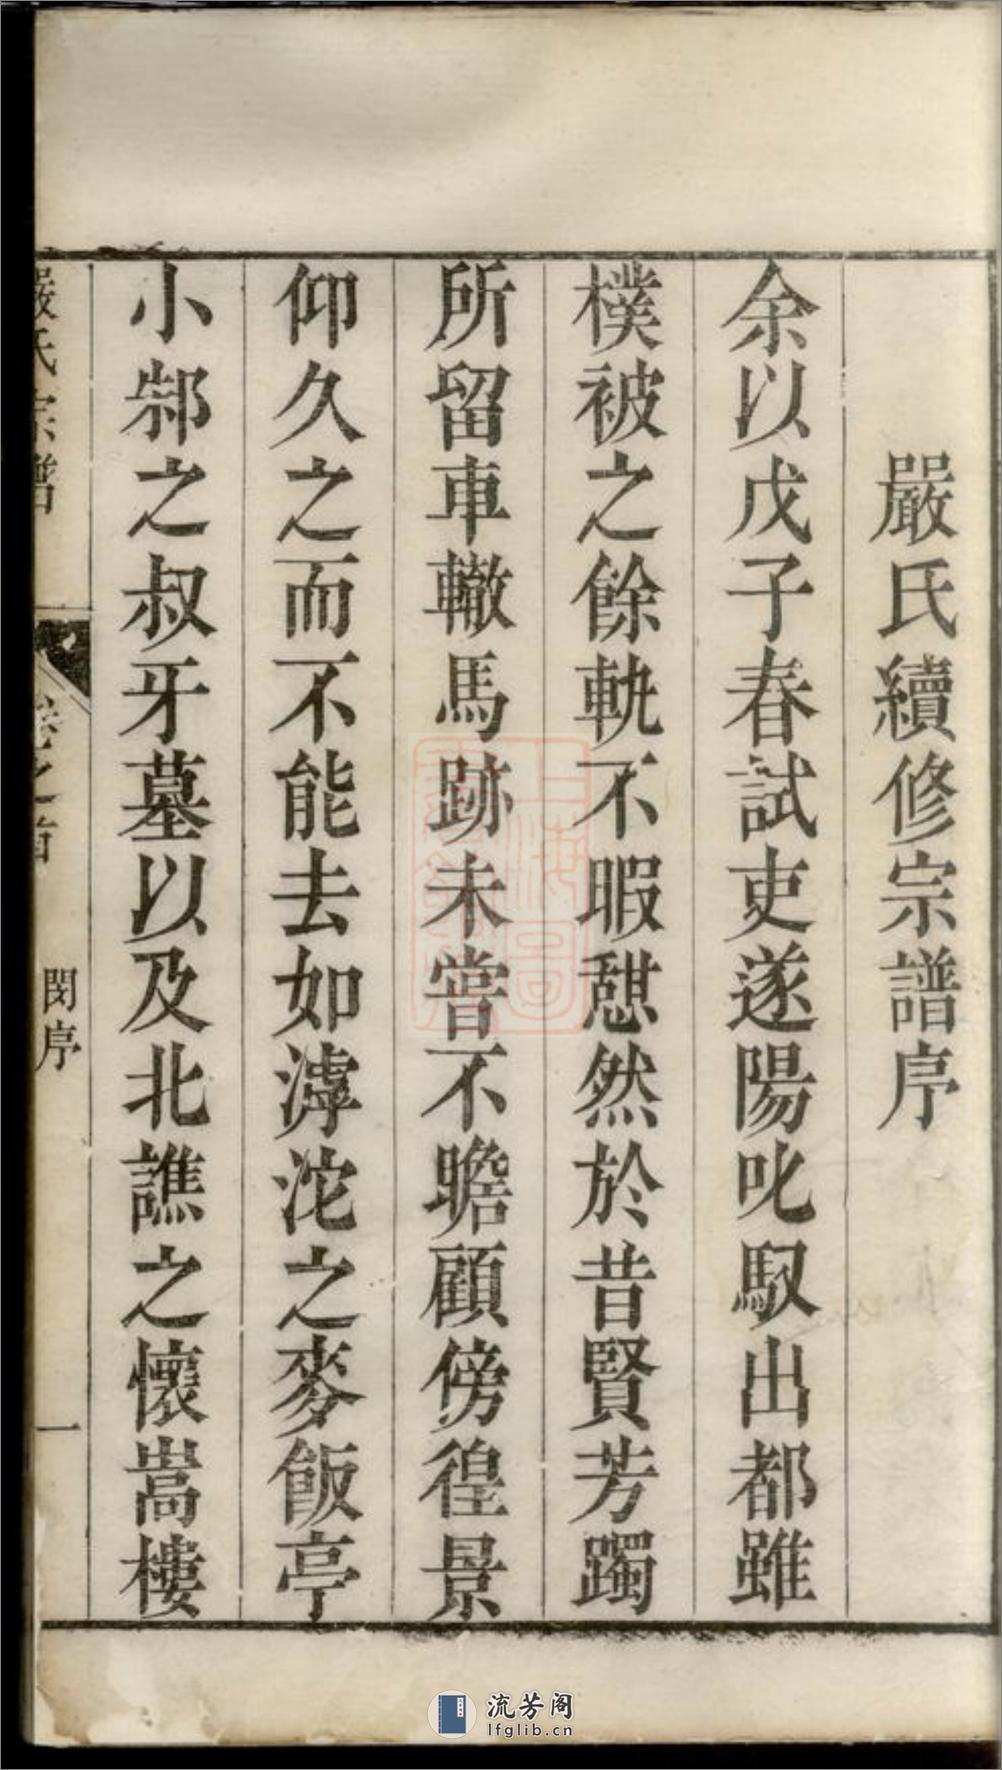 嚴氏續修宗譜序
余以戊子春試吏遂陽叱馭出都雖
樸被之餘軌不暇憇然於昔賢芳躅
所留車轍馬跡未嘗不瞻顧傍徨景
仰久之而不能去如滹沱之麥飯亭
小邾之叔牙墓以及北譙之懷嵩樓
嚴氏宗譜
卷之首
閔序
一
流芳阁
lfglib.cn